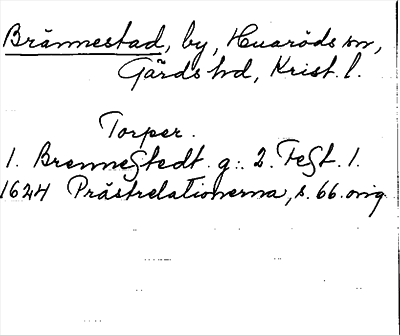 Brännestad, by, Huaröds sn,
Gärds hd, Krist. l.
Torper.
1. Brennestedt g:. 2. Fest. 1.
1624 Prästrelationerna, s. 66. orig